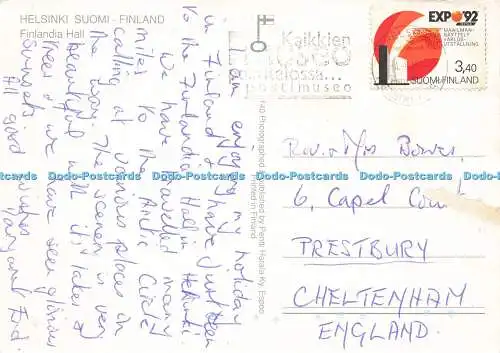 HELSINKI SUOMI - FINLAND
Finlandia Hall
I am enjoying my holiday
in Finland & have just been
to the Finlandia Hall in Helsinki.
We have travelled many
miles to the Arctic Circle
calling at various places in
the way. The scenery is very
beautiful with it's lakes &
trees & we have seen glorious
Sunsets.
All good wishes
Margaret
740 Photographed & published by Pentti Harala Ky, Espoo
Printed in Finland
Kaikkien
postimuseo
EXPO'92
MAAILMAN-
NÄYTTELY
VÄRLDS-
UTSTÄLLNING
3,40
SUOMI-FINLAND
Rev. & Mrs
6, Capel Court
PRESTBURY
CHELTENHAM
ENGLAND.
Dodo-Postcards Dodo-Postcards Dodo-Postcards Dodo-Postcards